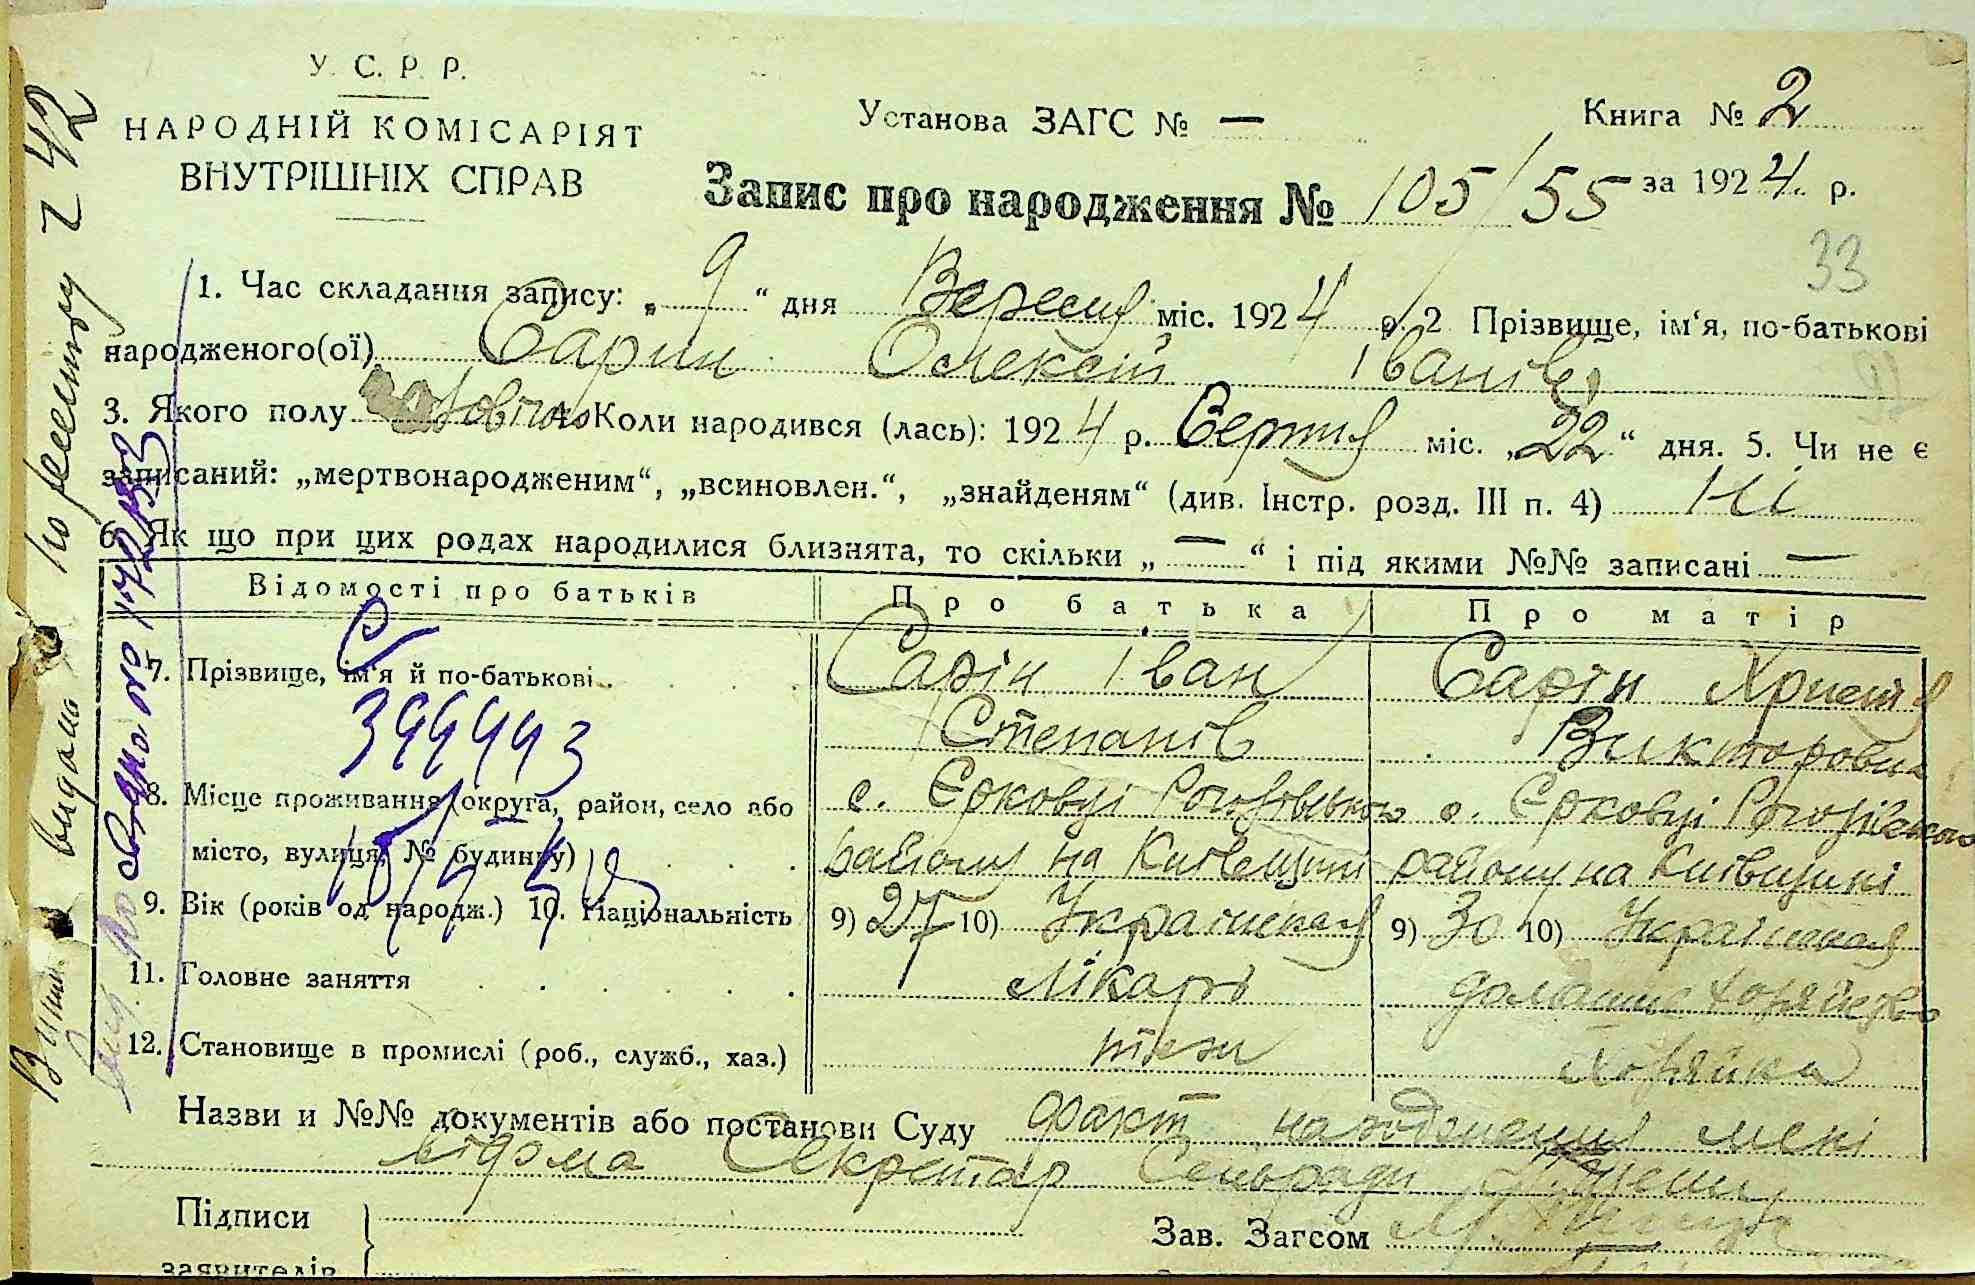 У. С. Р. Р.
НАРОДНІЙ КОМІСАРІЯТ
ВНУТРІШНІХ СПРАВ
Установа ЗАГС № —
Книга № 2
Запис про народження № 105/55 за 1924 р.
33
1. Час складання запису: „9“ дня Вересня міс. 1924 р. 2 Прізвище, ім‘я, по-батькові
народженого(ої) Сарин Олексій Іванів
3. Якого полу 4. Коли народився (лась): 1924 р. Серпня міс. „22“ дня. 5. Чи не є
записаний: „мертвонародженим“, „всиновлен.“, „знайденям“ (див. Інстр. розд. III п. 4) Ні
6. Як що при цих родах народилися близнята, то скільки „—“ і під якими №№ записані —
Відомості про батьків Про батька Про матір
7. Прізвище, ім‘я й по-батькові Сарін Іван Сарін Христя
Степанів Викторовна
8. Місце проживання (округа, район, село або с. Єрковці с. Єрковці
місто, вулиця, № будинку) району на Київщині району на Київщині
9. Вік (років од народж.) 10. Національність 9) 27 10) Українська 9) 30 10) Українська
11. Головне заняття лікарь домашнє хозяйство
12. Становище в промислі (роб., служб., хаз.) хозяйка
Назви и №№ документів або постанови Суду факт народження мені
відома Секретар Сельради
Підписи
заявителів
Зав. Загсом